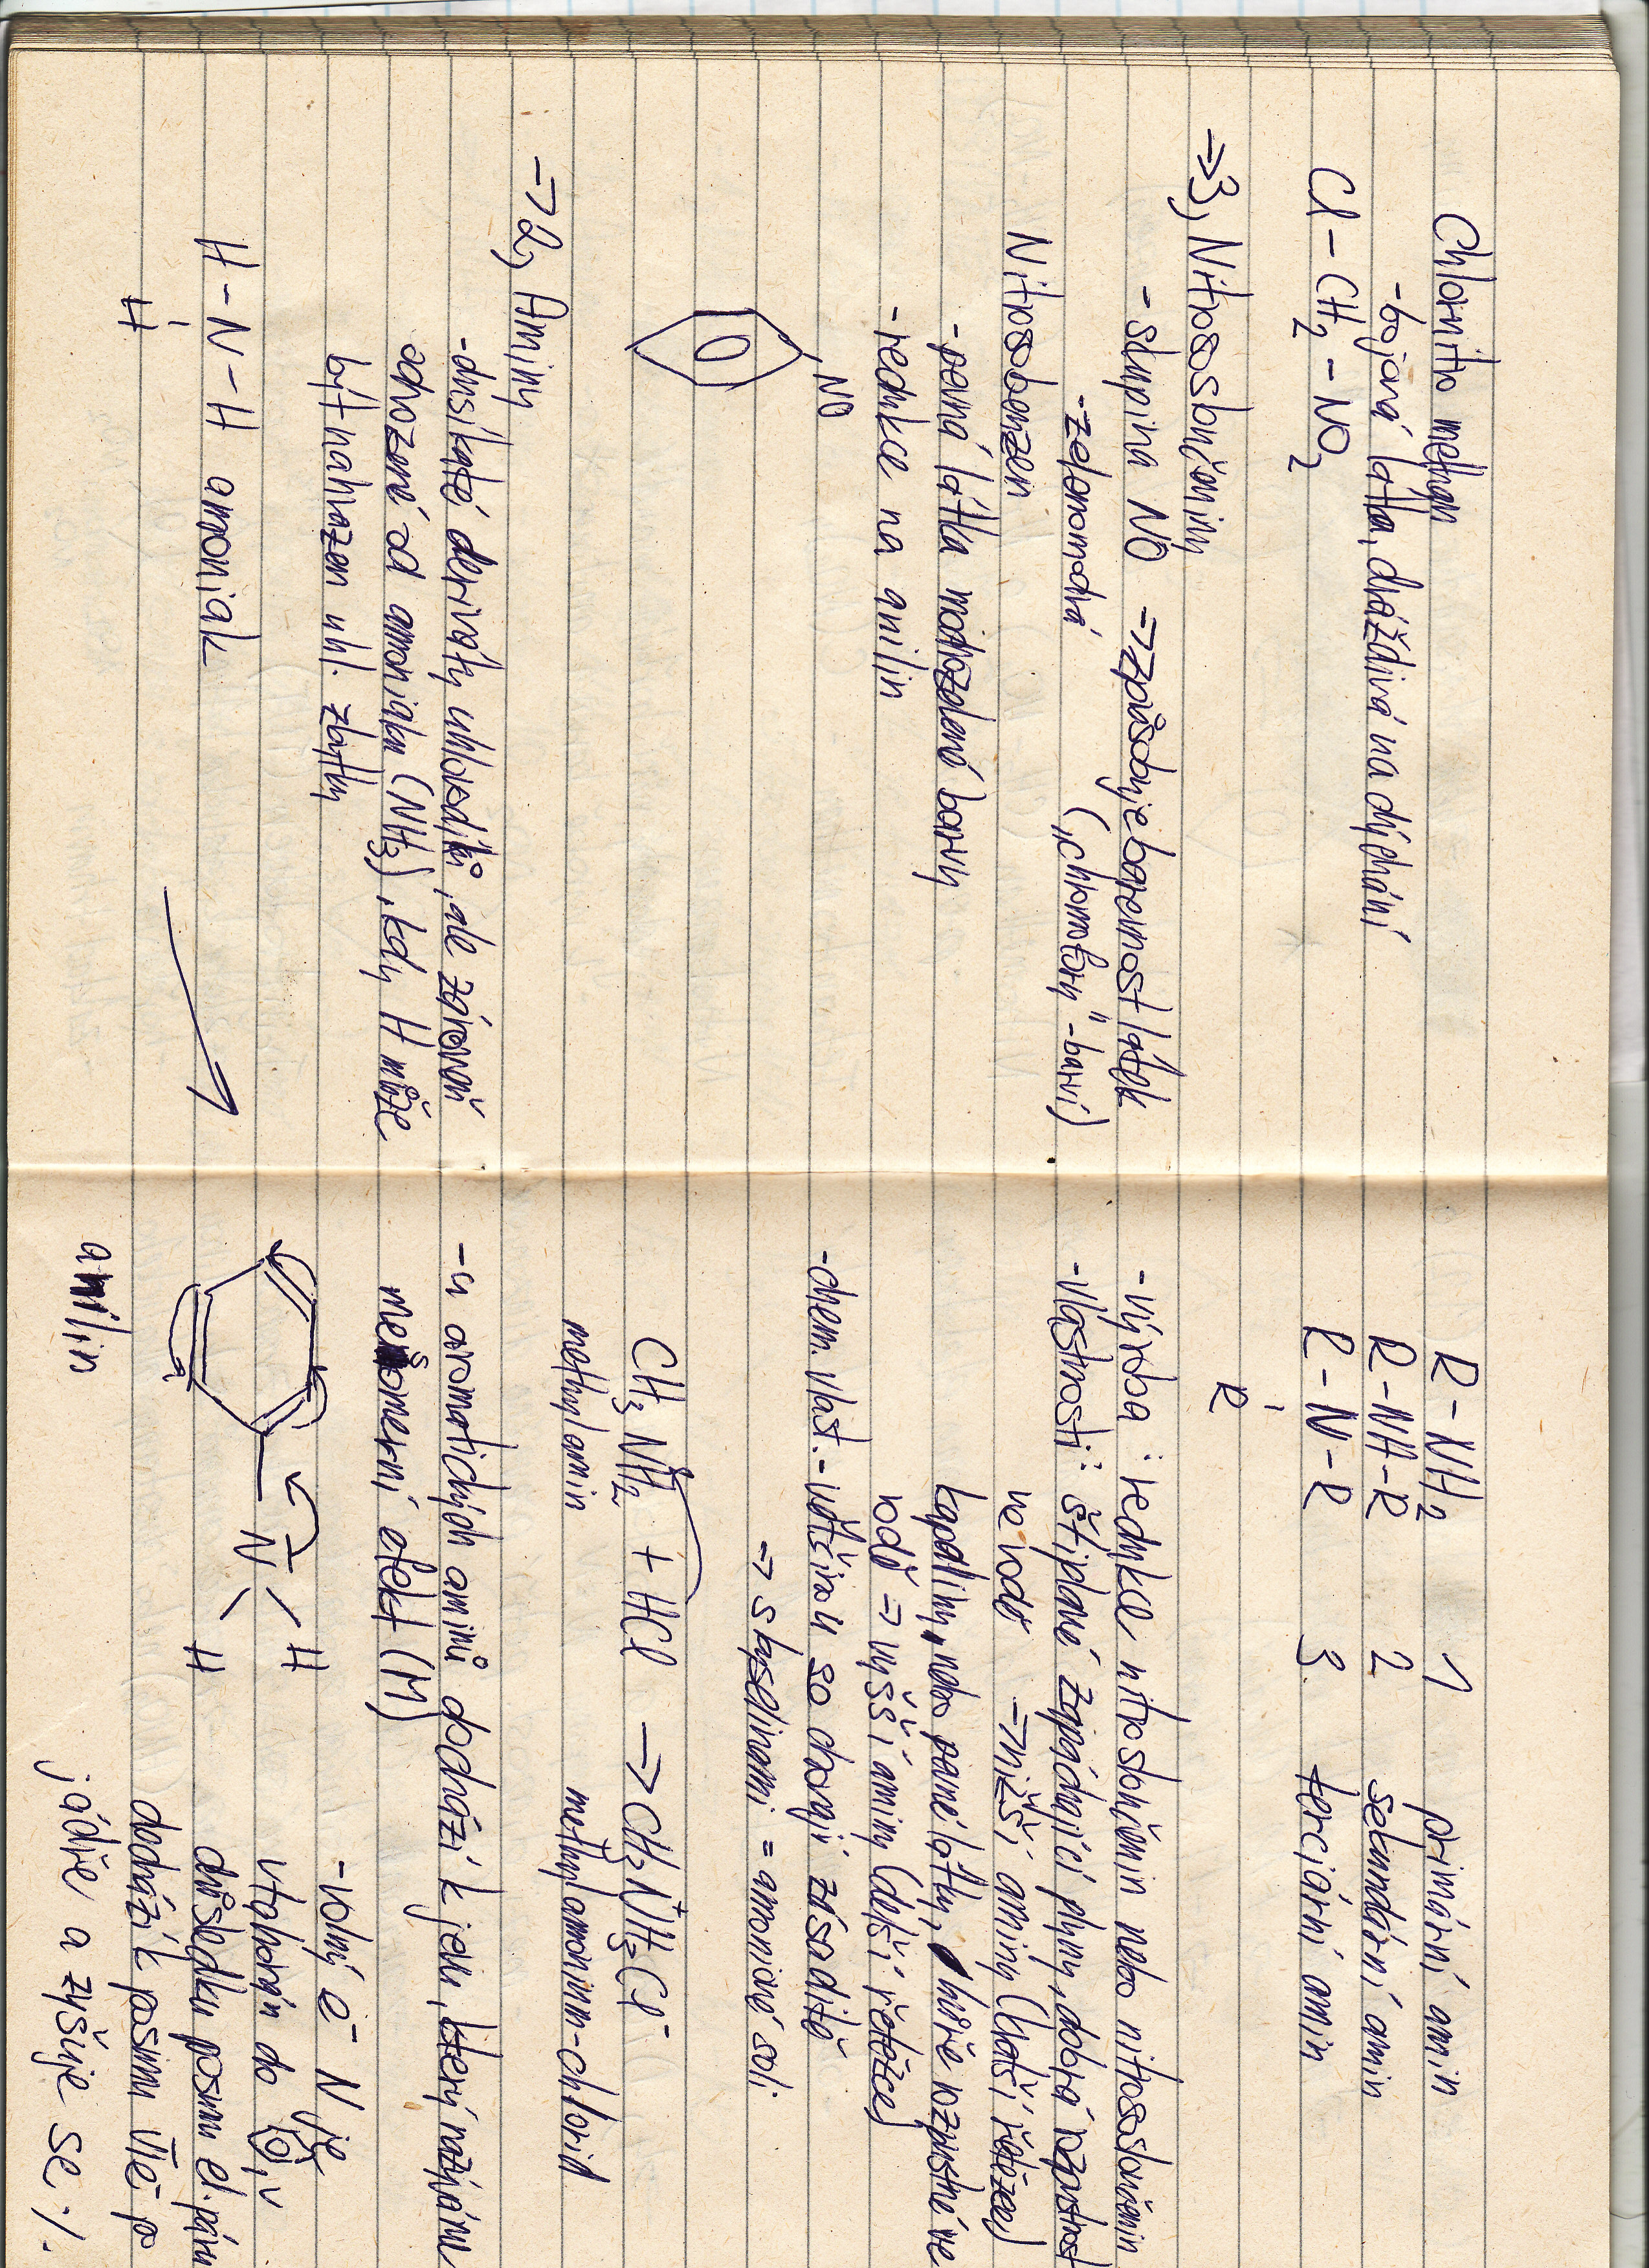 Chlornitro methan
-bojová látka, dráždivá na dýchání
Cl-CH2-NO2
=>3, Nitrososloučeniny
- skupina NO => způsobuje barevnost látek
-zelenomodrá ("chromofory" -barví)
Nitrosobenzen
-pevná látka modrozelené barvy
-redukce na anilin
NO
=>2, Aminy
-dusíkaté deriváty uhlovodíků, ale zároveň
odvozené od amoniaku (NH3), kdy H může
být nahrazen uhl. zbytky
H-N-H amoniak
H
R-NH2 1 primární amin
R-NH-R 2 sekundární amin
R-N-R 3 terciární amin
R
-výroba: redukce nitrosloučenin nebo nitrososloučenin
-vlastnosti: štiplavé zapáchající plyny, dobrá rozpustnost
ve vodě => nižší aminy (kratší řetězec)
kapaliny nebo pevné látky, hůře rozpustné ve
vodě => vyšší aminy (delší řetězce)
-chem. vlast. - většinou se chovají zásaditě
=> s kyselinami = amoniové soli
CH3NH2 + HCl -> CH3N+H3Cl-
methylamin methylamonium-chlorid
-u aromatických aminů dochází k jevu, který nazýváme
mesomerní efekt (M)
-volný e- N je
vtahován do , v
důsledku posunu el. páru
dochází k posunu vše p
jádře a zvyšuje se ./.
N H
H
anilin